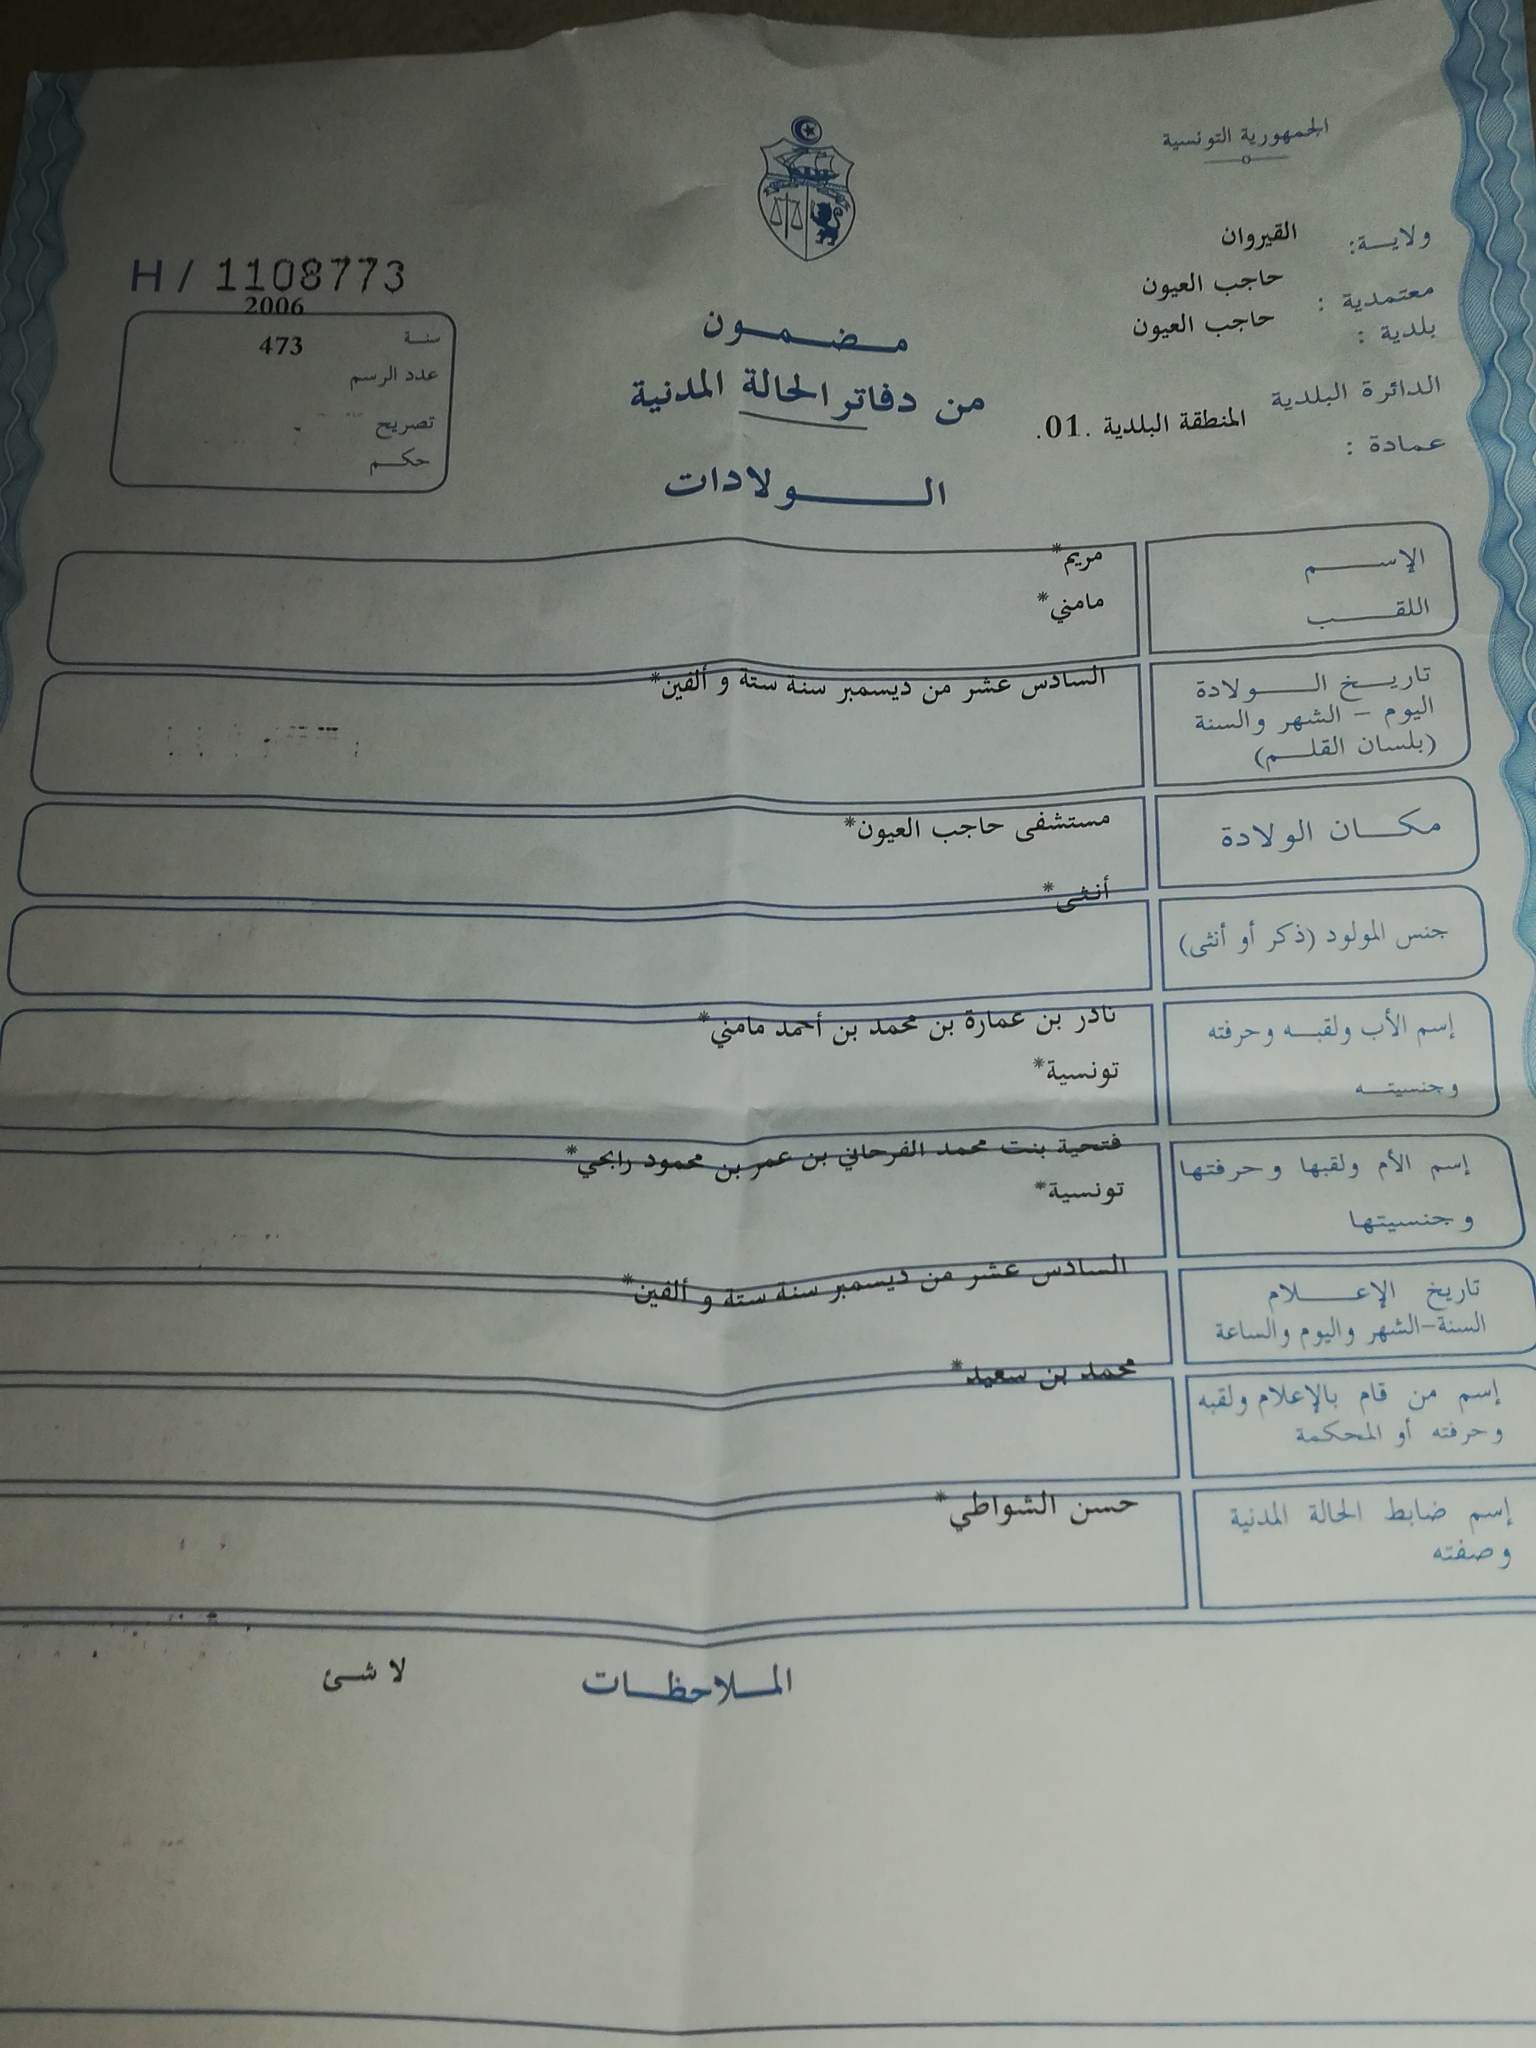 الجمهورية التونسية
ولاية: القيروان
معتمدية : حاجب العيون
بلدية : حاجب العيون
الدائرة البلدية المنطقة البلدية .01.
عمادة :
H/ 1108773
سنة 2006
عدد الرسم 473
تصريح
حكم
مضمون
من دفاتر الحالة المدنية
الولادات
الإسم مريم*
اللقب مامني*
تاريخ الولادة السادس عشر من ديسمبر سنة ستة و ألفين*
اليوم - الشهر والسنة
(بلسان القلم)
مكان الولادة مستشفى حاجب العيون*
جنس المولود (ذكر أو أنثى) أنثى*
إسم الأب ولقبه وحرفته نادر بن عمارة بن محمد بن أحمد مامني*
وجنسيته تونسية*
إسم الأم ولقبها وحرفتها فتحية بنت محمد الفرحاني بن عمر بن محمود رابحي*
وجنسيتها تونسية*
تاريخ الإعلام السادس عشر من ديسمبر سنة ستة و ألفين*
السنة-الشهر واليوم والساعة
إسم من قام بالإعلام ولقبه محمد بن سعيد*
وحرفته أو المحكمة
إسم ضابط الحالة المدنية حسن الشواطي*
وصفته
الملاحظات لا شئ